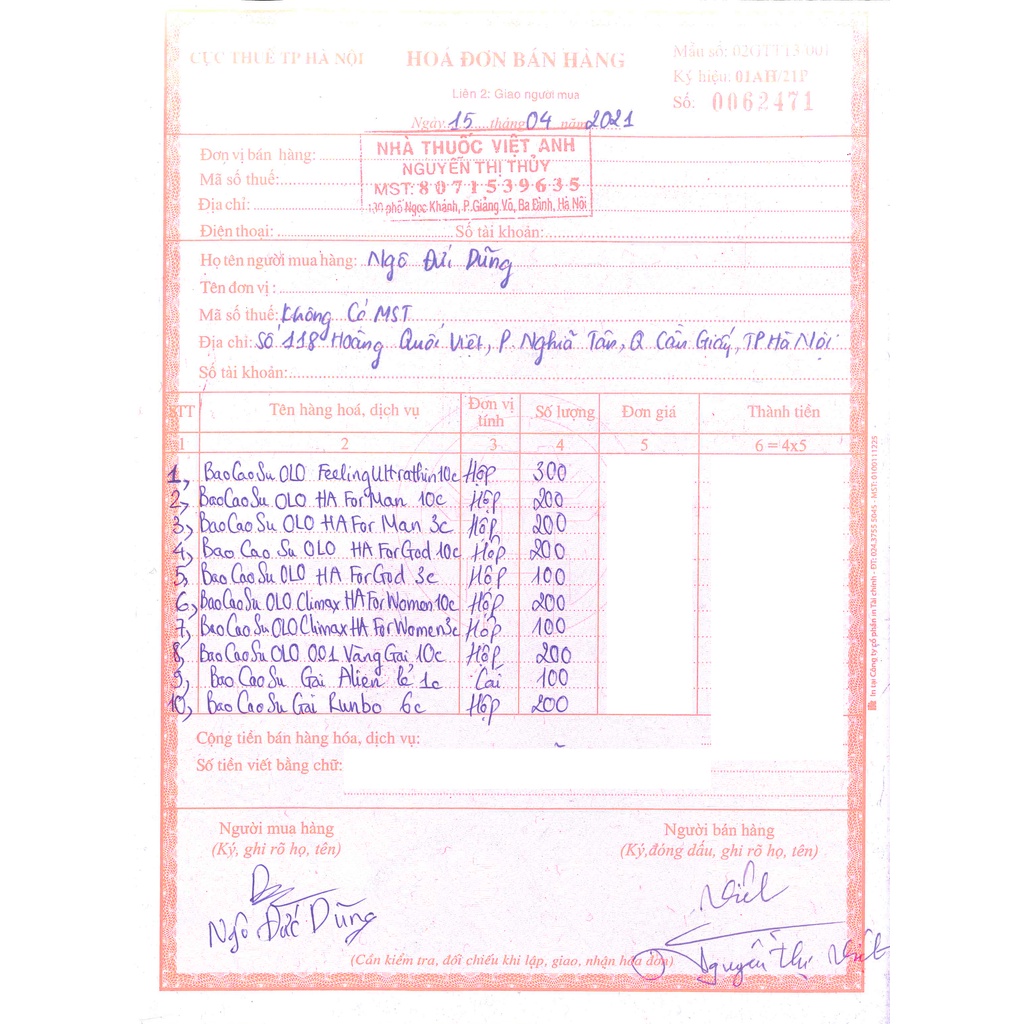 CỤC THUẾ TP HÀ NỘI
HOÁ ĐƠN BÁN HÀNG
Mẫu số: 02GTTT3/001
Ký hiệu: 01AH/21P
Liên 2: Giao người mua
Số: 0062471
Ngày 15 tháng 04 năm 2021
NHÀ THUỐC VIỆT ANH
NGUYỄN THỊ THỦY
MST: 8071539635
130 phố Ngọc Khánh, P.Giảng Võ, Ba Đình, Hà Nội
Đơn vị bán hàng:
Mã số thuế:
Địa chỉ:
Điện thoại: Số tài khoản:
Họ tên người mua hàng: Ngô Đức Dũng
Tên đơn vị :
Mã số thuế: Không Có MST
Địa chỉ: Số 118 Hoàng Quốc Việt, P. Nghĩa Tân, Q Cần Giấy, TP Hà Nội
Số tài khoản:
STT Tên hàng hoá, dịch vụ Đơn vị tính Số lượng Đơn giá Thành tiền
1 2 3 4 5 6 = 4x5
1, Bao Cao Su OLO Feeling Ultrathin 10c Hộp 300
2, Bao Cao Su OLO HA For Man 10c Hộp 200
3, Bao Cao Su OLO HA For Man 3c Hộp 200
4, Bao Cao Su OLO HA For God 10c Hộp 200
5, Bao Cao Su OLO HA For God 3c Hộp 100
6, Bao Cao Su OLO Climax HA For Women 10c Hộp 200
7, Bao Cao Su OLO Climax HA For Women 3c Hộp 100
8, Bao Cao Su OLO 0.01 Vàng Gai 10c Hộp 200
9, Bao Cao Su Gai Alien lẻ 1c Cái 100
10, Bao Cao Su Gai Runbo 6c Hộp 200
Cộng tiền bán hàng hóa, dịch vụ:
Số tiền viết bằng chữ:
Người mua hàng
(Ký, ghi rõ họ, tên)
Người bán hàng
(Ký,đóng dấu, ghi rõ họ, tên)
Ngô Đức Dũng
Việt
Nguyễn Thị Việt
(Cần kiểm tra, đối chiếu khi lập, giao, nhận hóa đơn)
In tại Công ty cổ phần in Tài chính - ĐT: 024.3755 5645 - MST: 0100111225